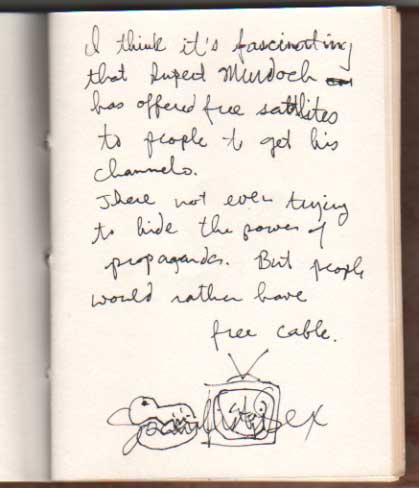 I think it's fascinating
that Rupert Murdoch
has offered free satllites
to people to get his
channels.
There not even trying
to hide the power of
propaganda. But people
would rather have
free cable.